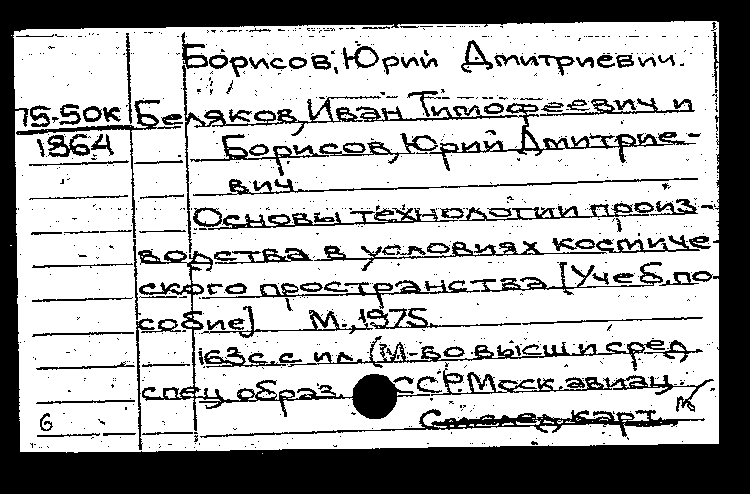 Борисов, Юрий Дмитриевич.
75-50к Беляков, Иван Тимофеевич и
1364 Борисов, Юрий Дмитрие-
вич.
Основы технологии произ-
водства в условиях космиче-
ского пространства [Учеб. по-
собие] М., 1975.
163 с. с ил. (М-во высш и сред.
спец образ. ССР. Моск. авиац.
6 См. след. карт.